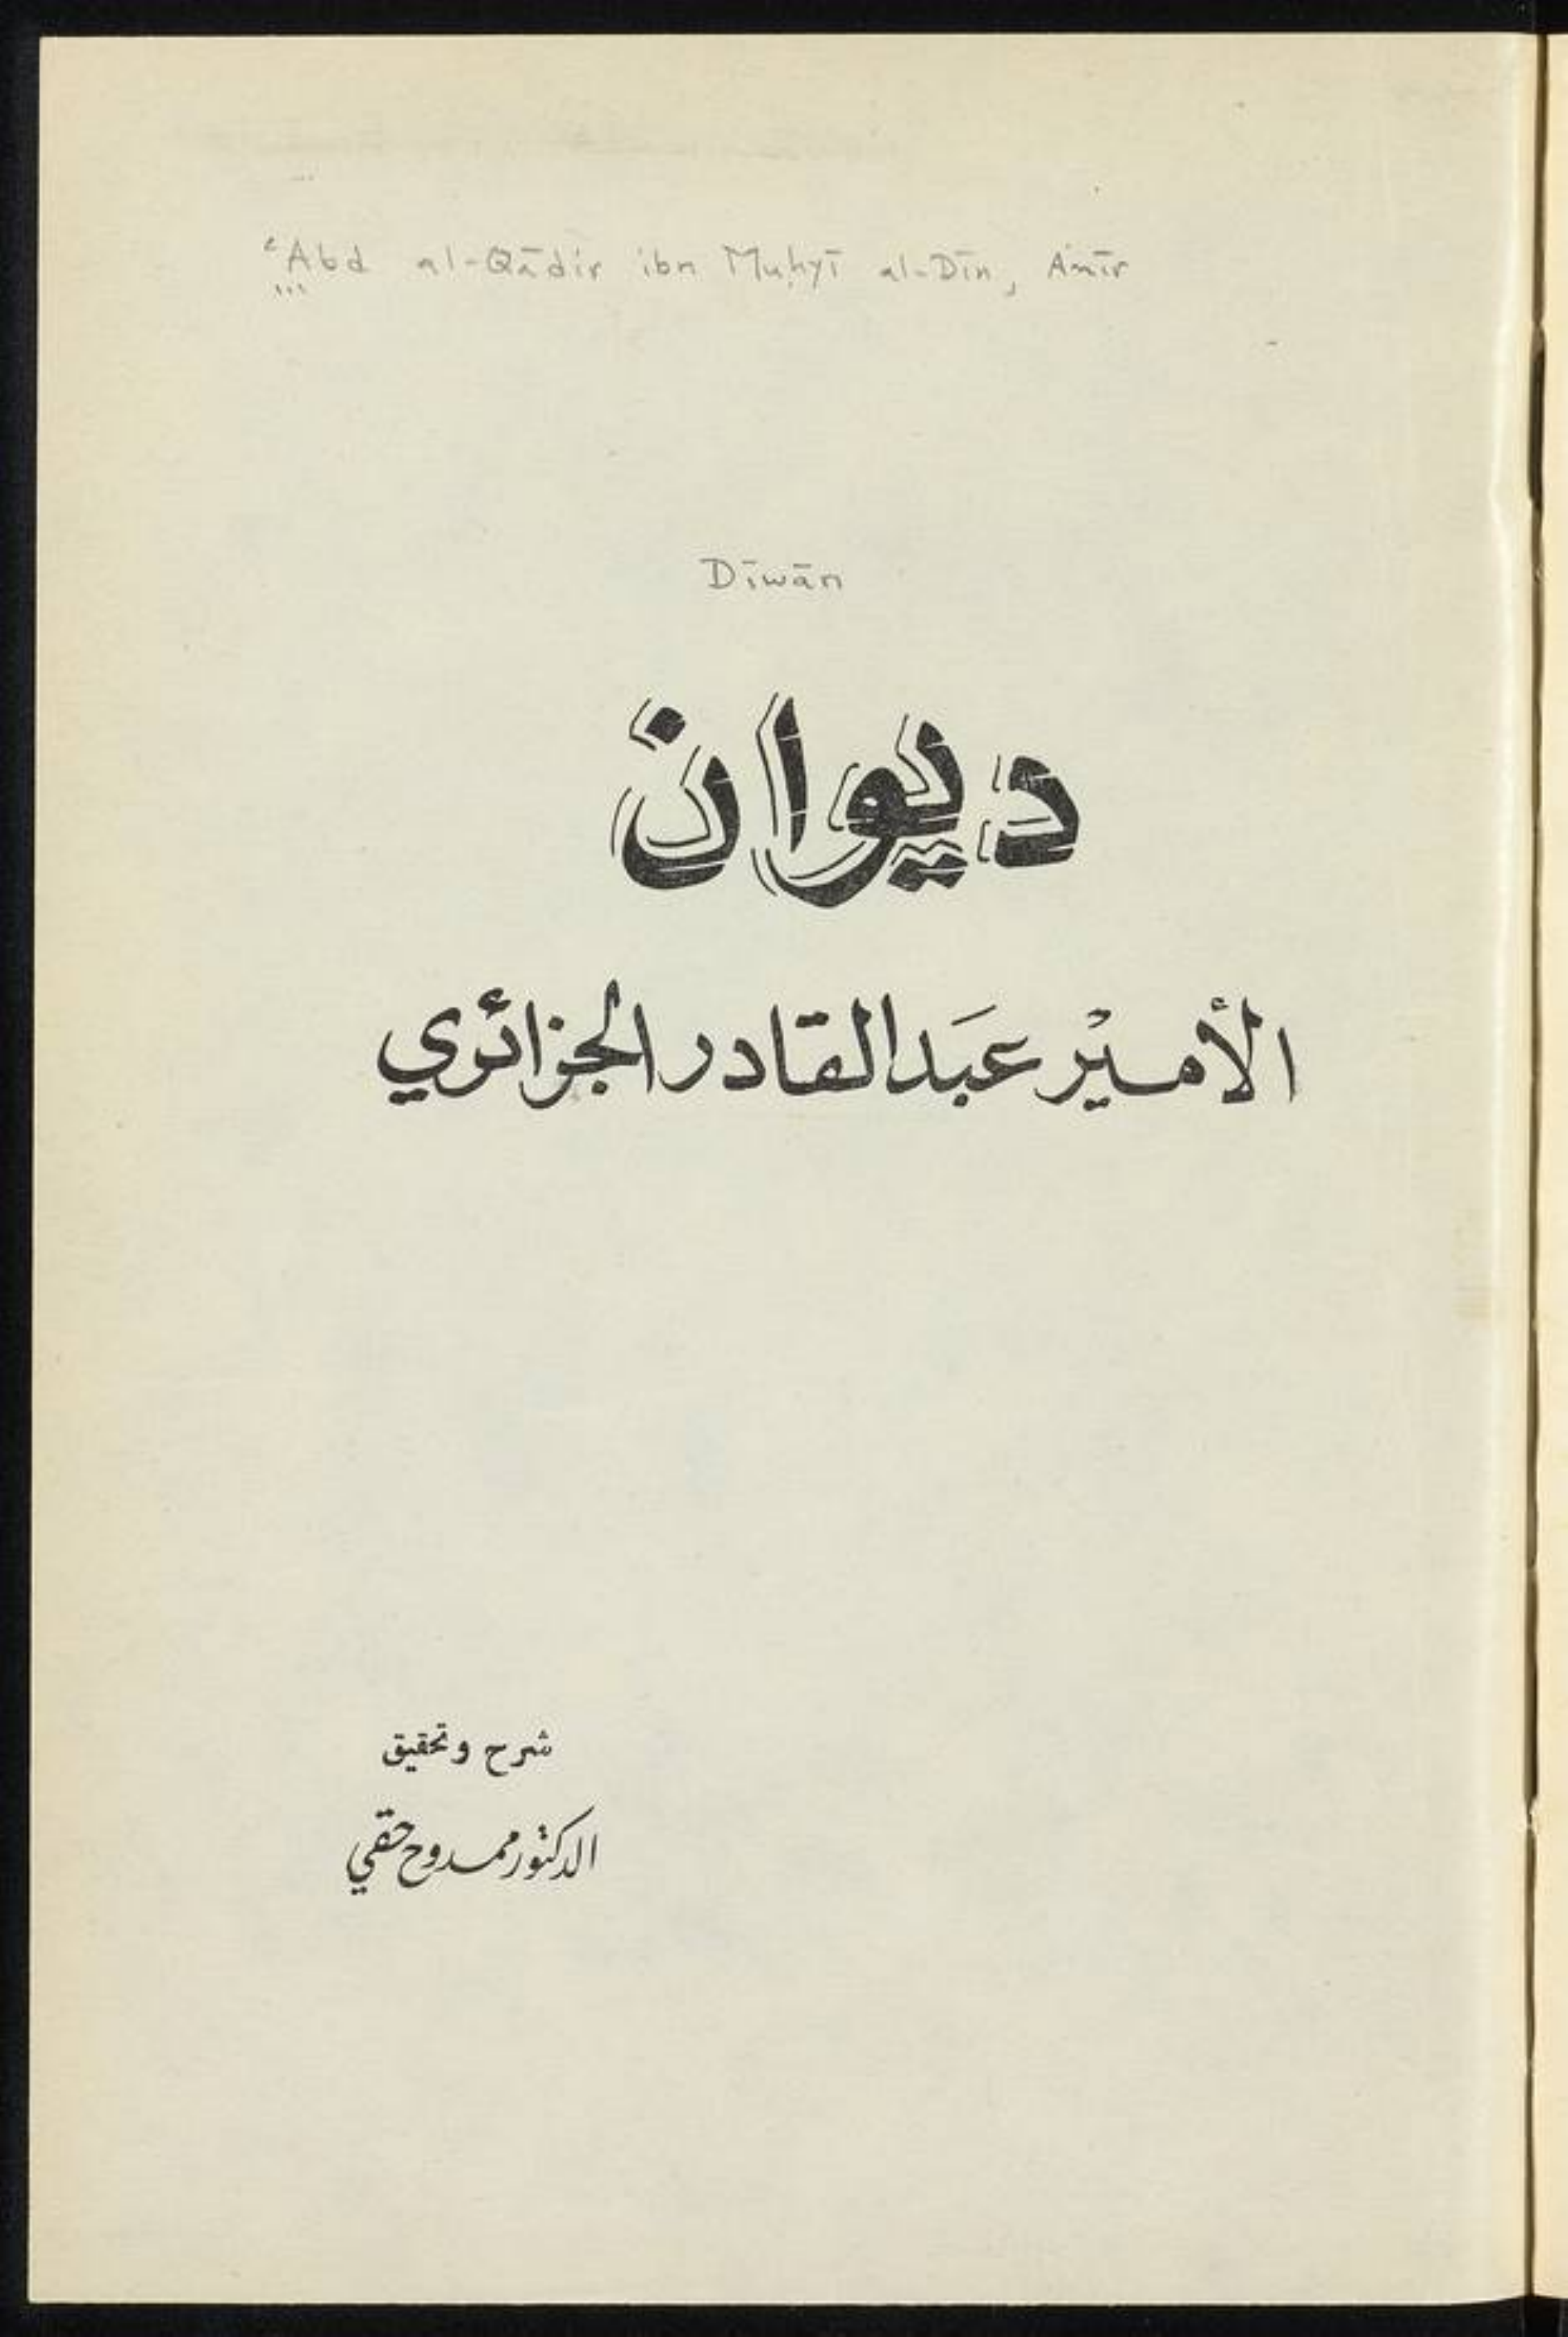 ʿAbd al-Qādir ibn Muḥyī al-Dīn, Amīr
Dīwān
ديوان
الأميْر عبَدالقادر الجزائري
شرح وتحقيق
الدكتور ممدوح حقي